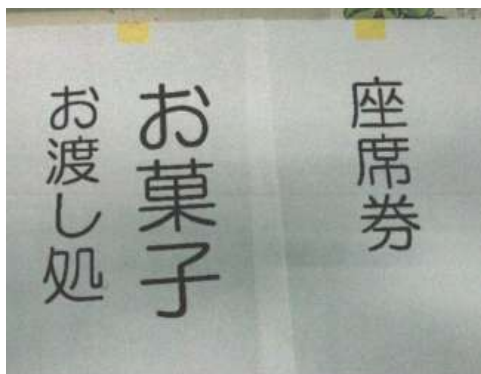 座席券
お菓子
お渡し処